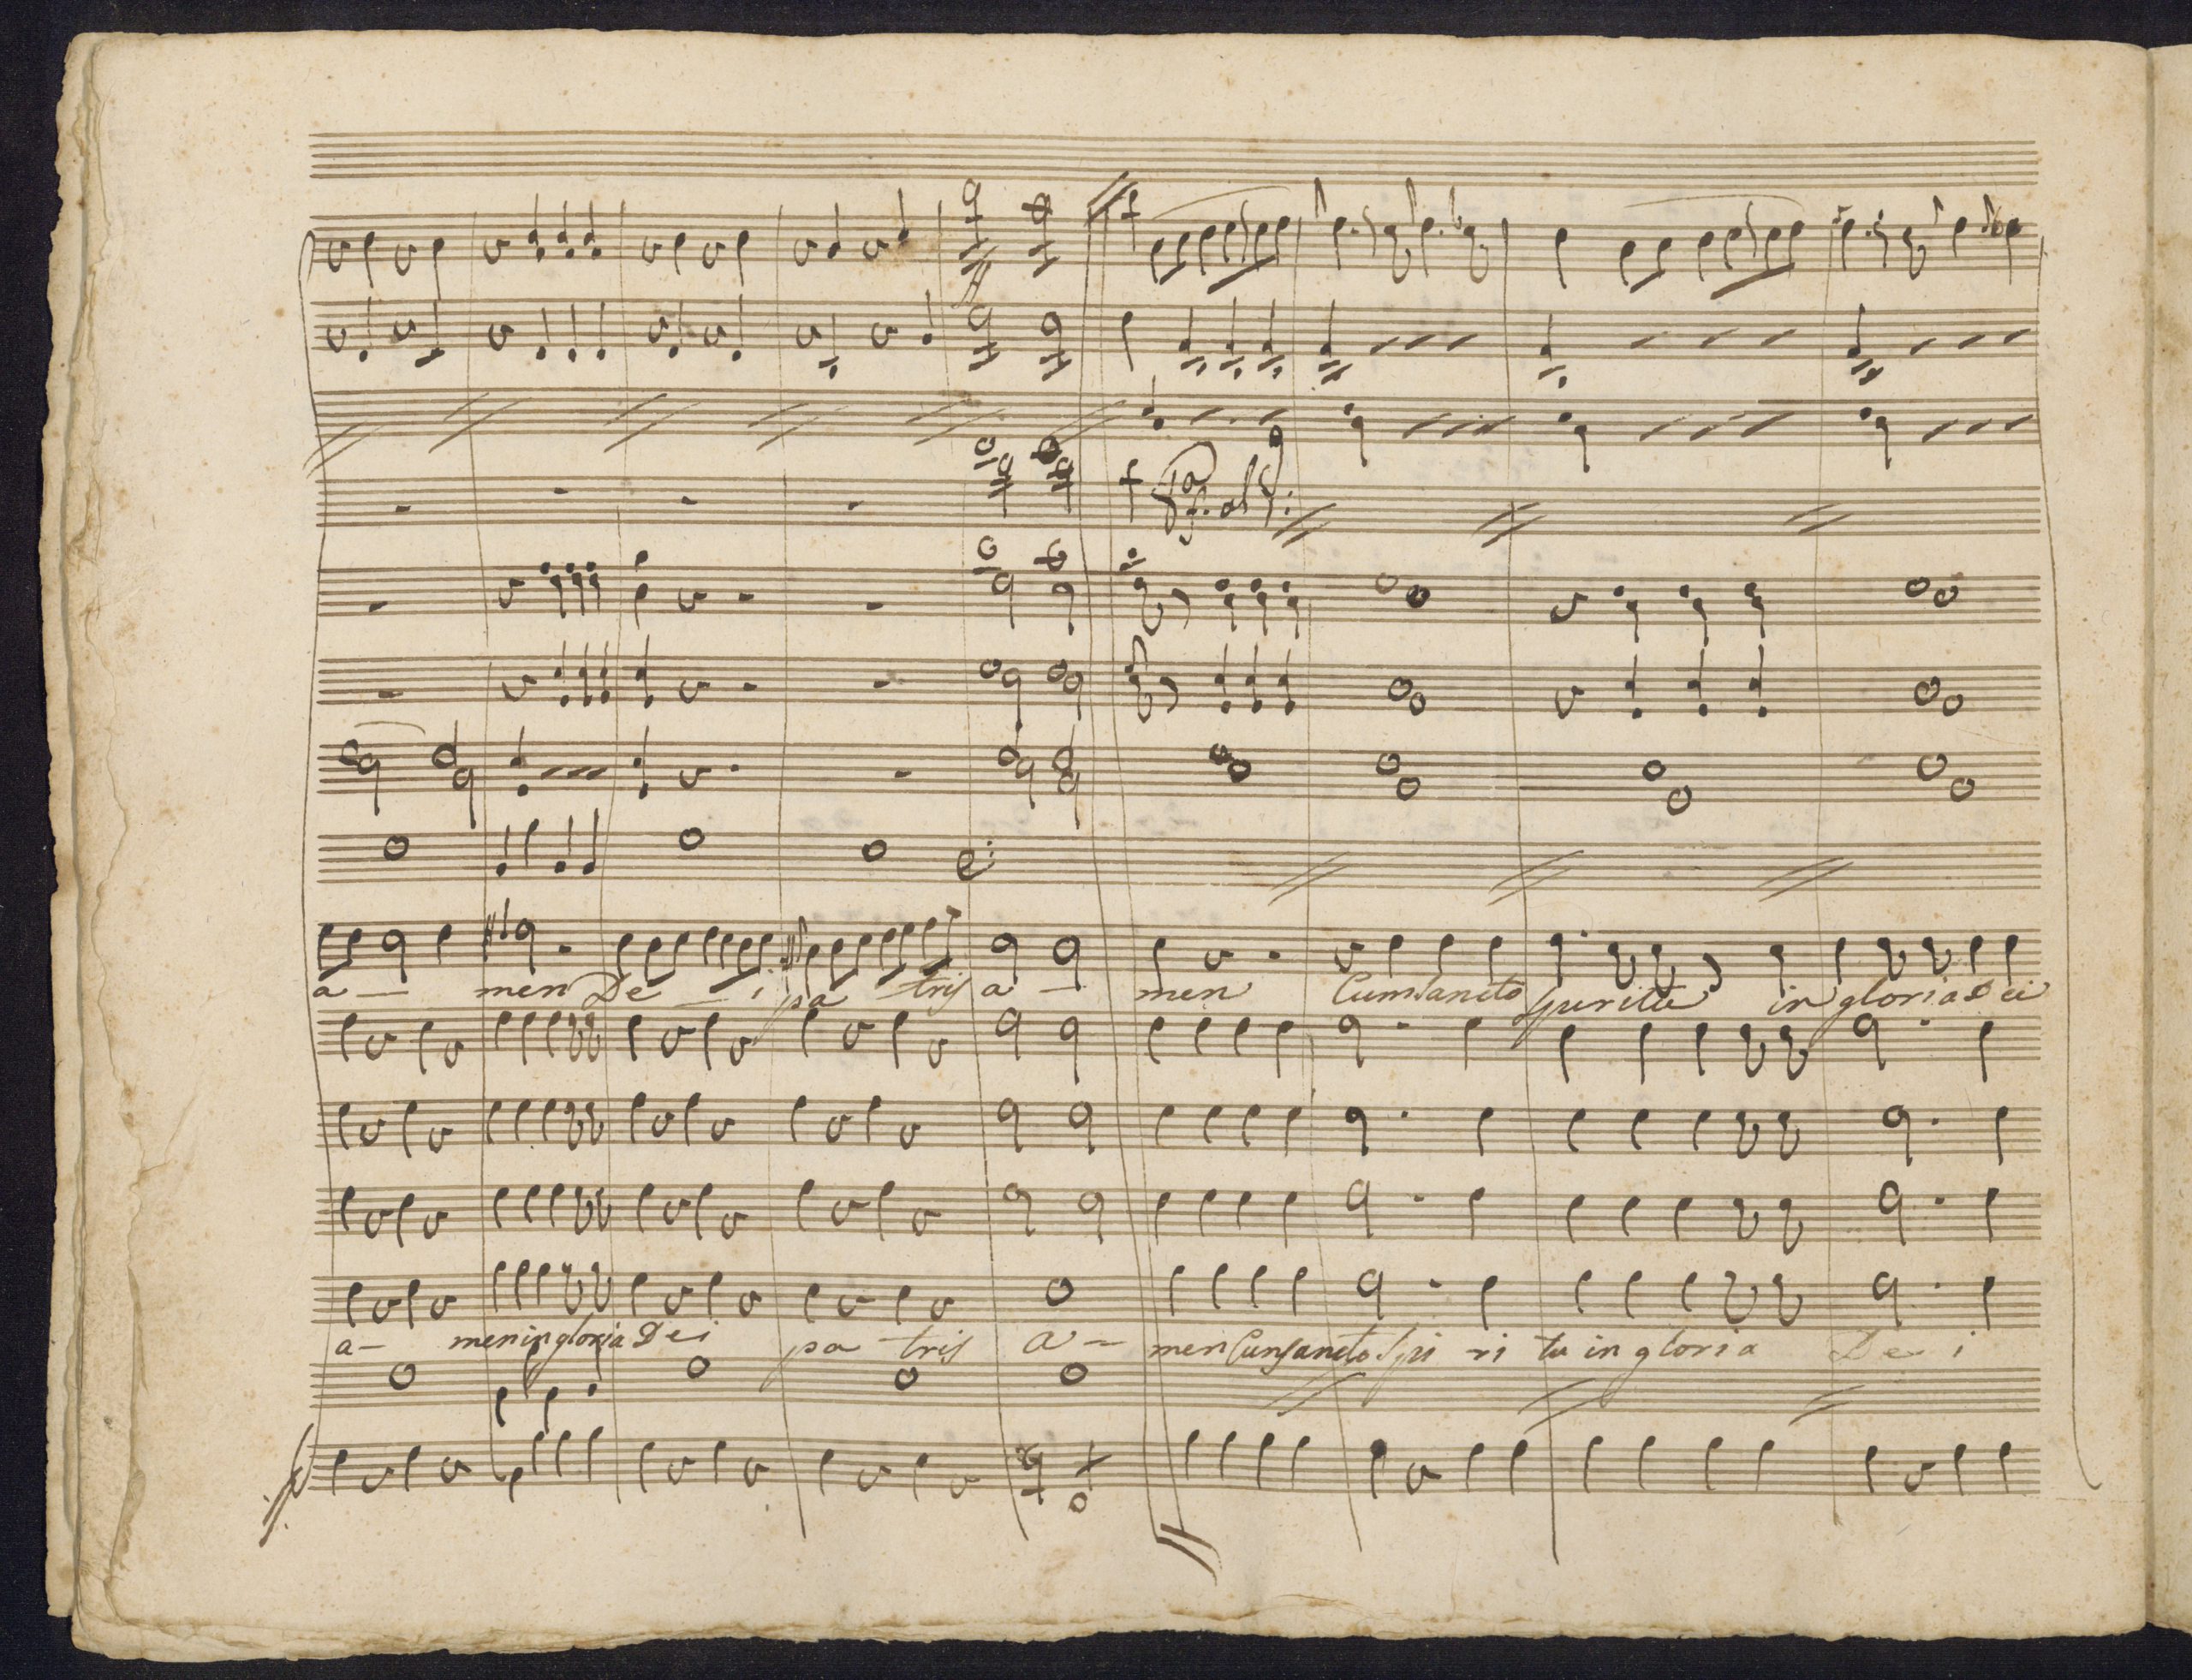 ff
a — men De — i pa — tris a — men Cum Sancto Spiritu in gloria Dei
a — men in gloria Dei pa — tris a — men Cum Sancto Spi ri tu in gloria De i